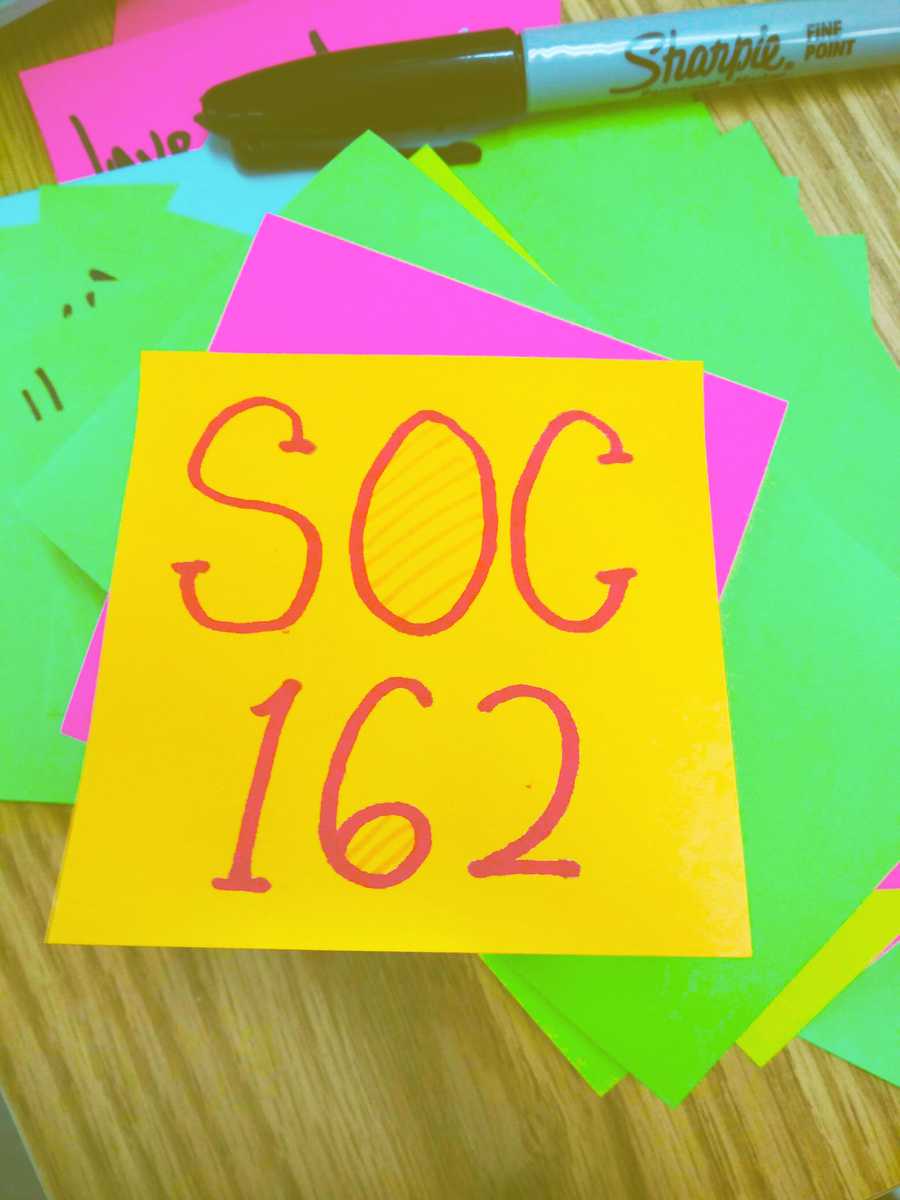 Sharpie.
FINE
POINT
SOC
162